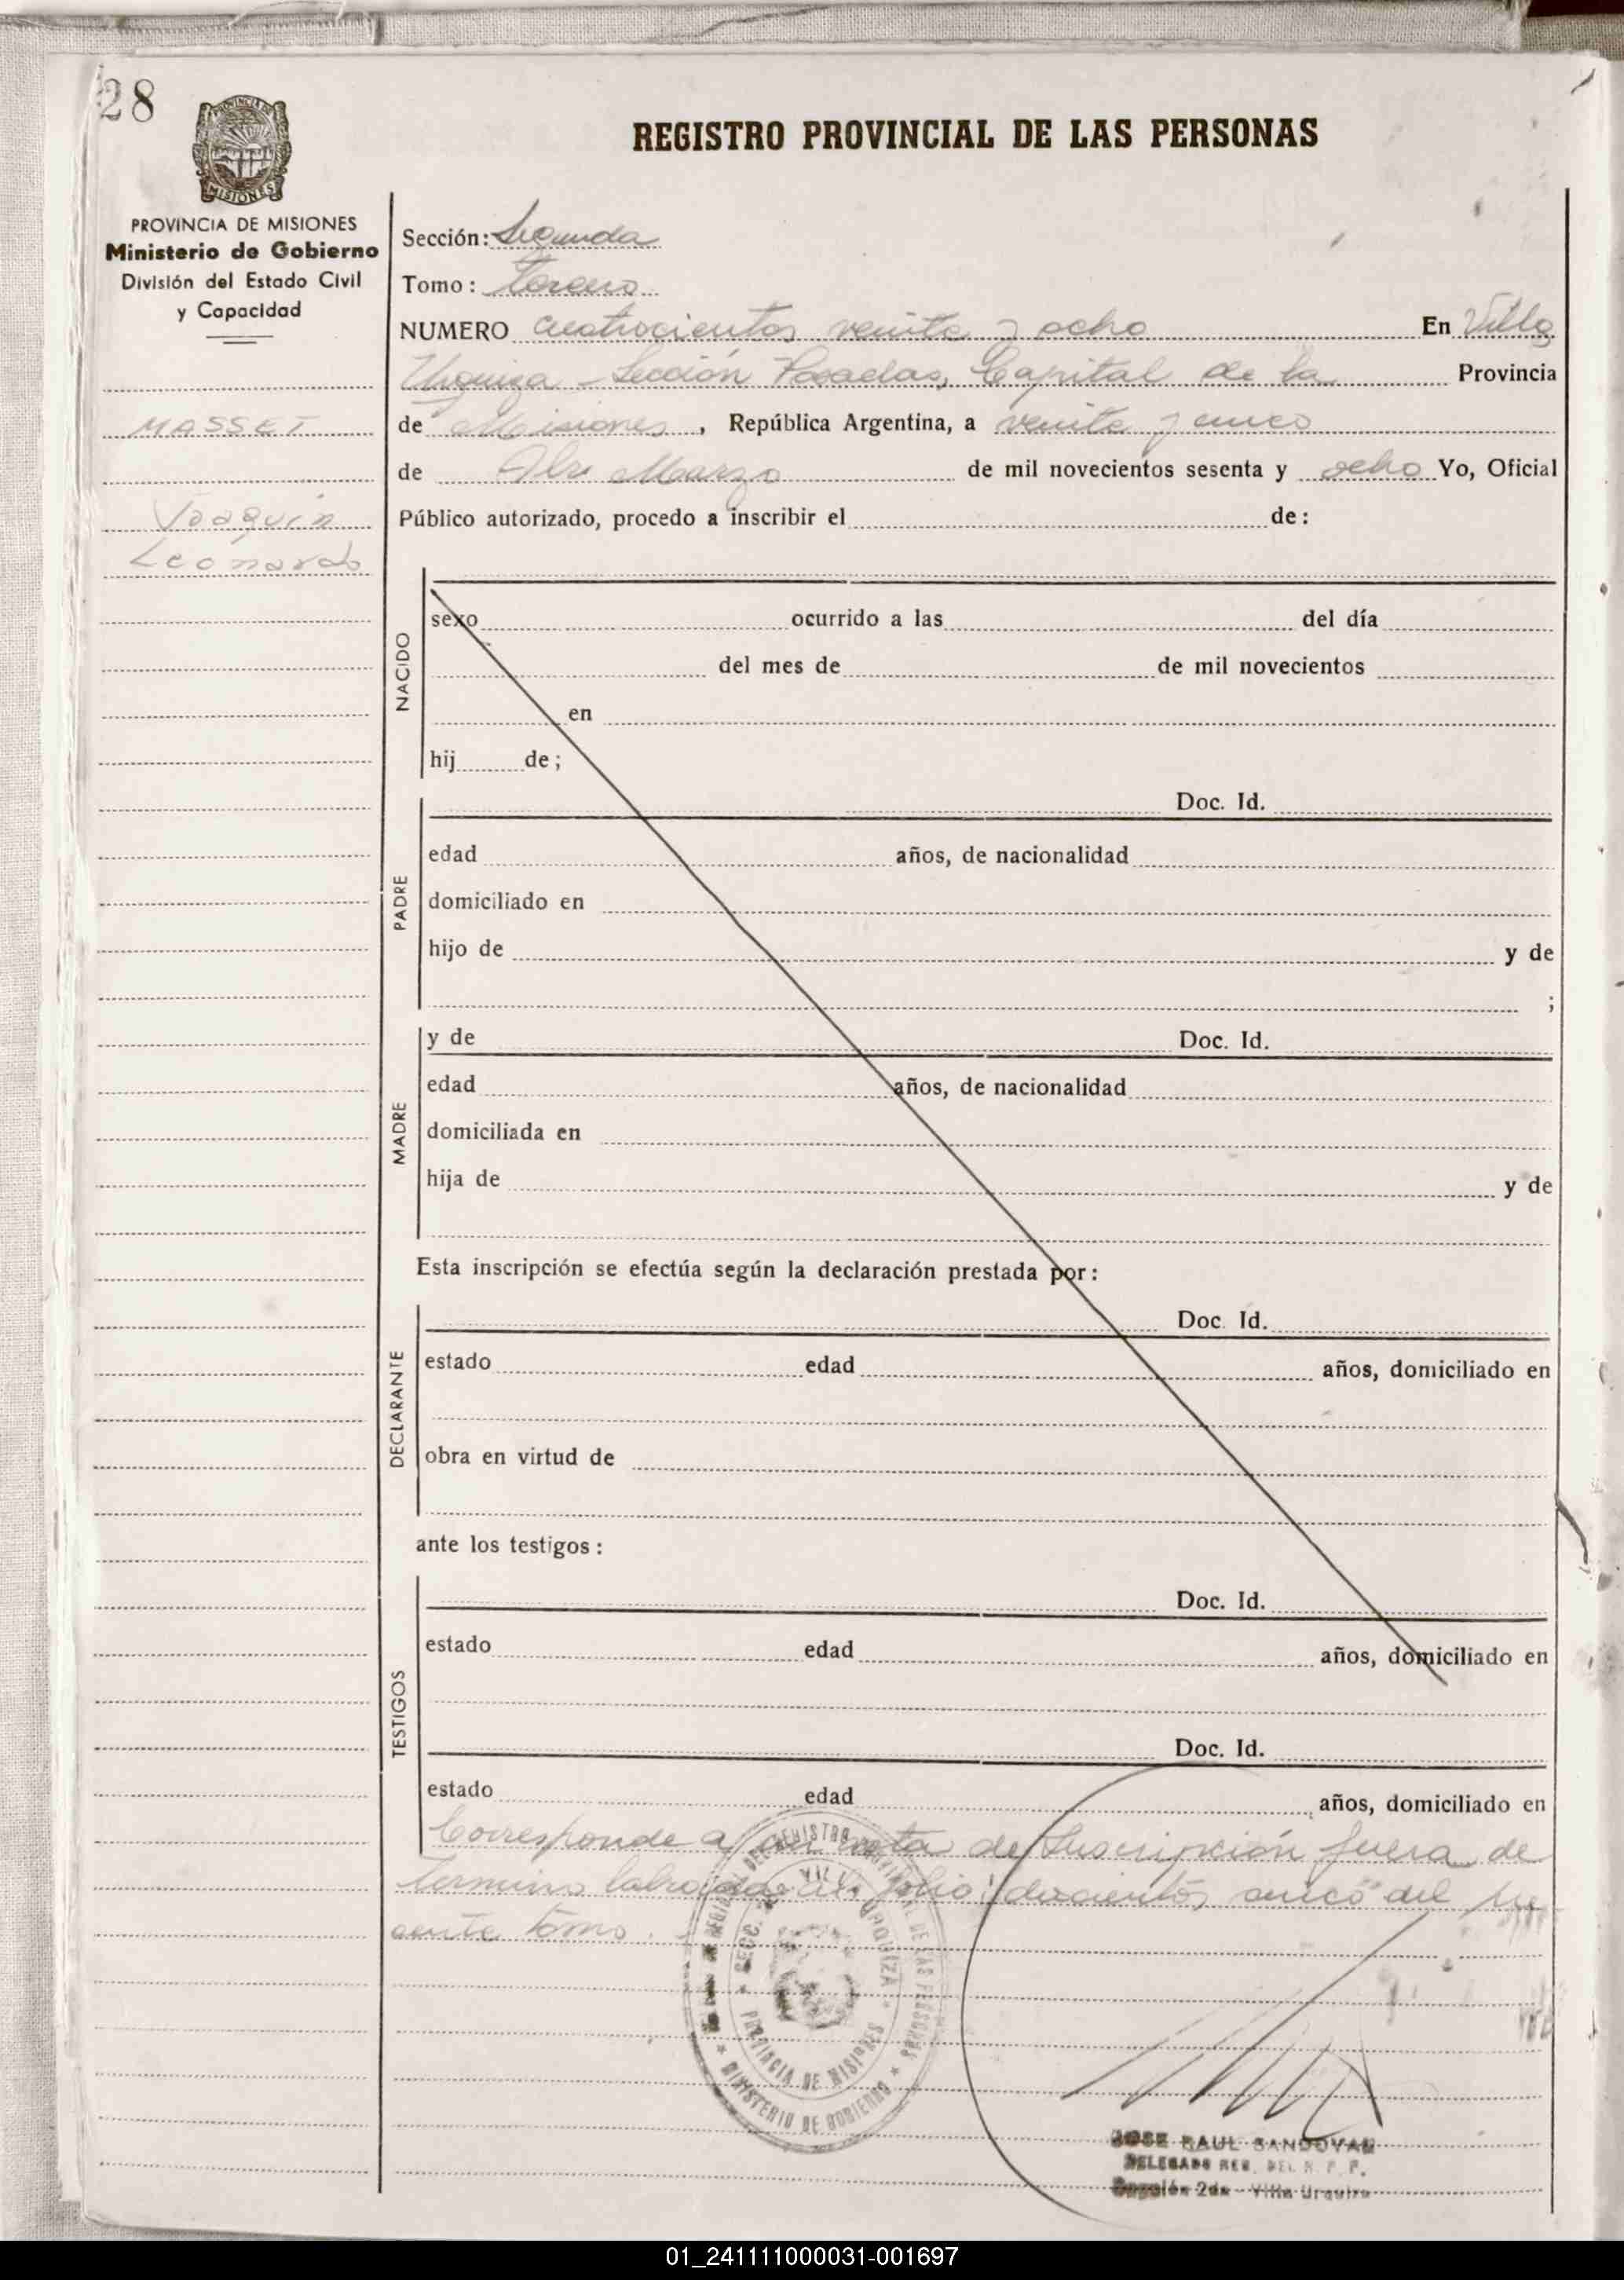 28
REGISTRO PROVINCIAL DE LAS PERSONAS
PROVINCIA DE
MISIONES
PROVINCIA DE MISIONES
Ministerio de Gobierno
División del Estado Civil
y Capacidad
MASSET
Joaquín
Leonardo
Sección: Segunda
Tomo: Tercero
NUMERO cuatrocientos veinte y ocho En Villa
Urquiza - Sección Posadas, Capital de la Provincia
de Misiones, República Argentina, a veinte y cinco
de Marzo de mil novecientos sesenta y ocho Yo, Oficial
Público autorizado, procedo a inscribir el de:
NACIDO
sexo ocurrido a las del día
del mes de de mil novecientos
en
hij de;
PADRE
Doc. Id.
edad años, de nacionalidad
domiciliado en
hijo de y de
;
MADRE
y de Doc. Id.
edad años, de nacionalidad
domiciliada en
hija de y de
Esta inscripción se efectúa según la declaración prestada por:
DECLARANTE
Doc. Id.
estado edad años, domiciliado en
obra en virtud de
ante los testigos:
TESTIGOS
Doc. Id.
estado edad años, domiciliado en
Doc. Id.
estado edad años, domiciliado en
Corresponde a acta de Inscripción fuera de
termino labrada al folio docientos cinco del pre
sente tomo.
SECC. VILLA URQUIZA
PROVINCIA DE MISIONES
MINISTERIO DE GOBIERNO
JOSE RAUL SANDOVAL
DELEGADO REG. DEL R. P. P.
Sección 2da - Villa Urquiza
01_241111000031-001697